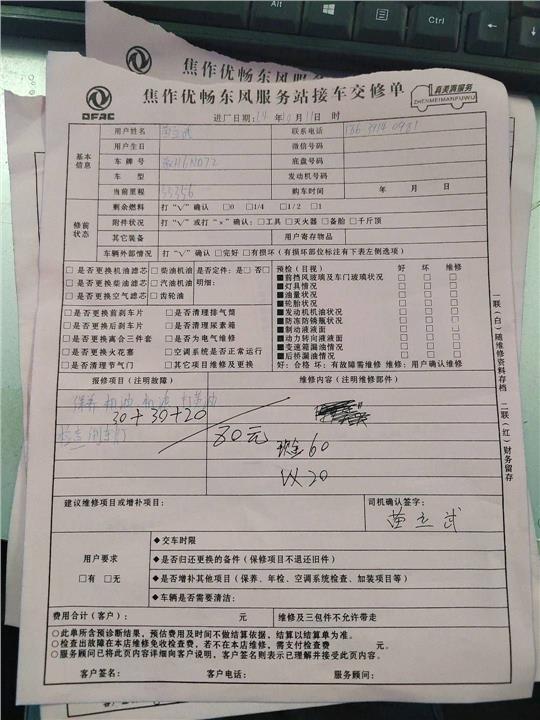 焦作优畅东风服务
焦作优畅东风服务站接车交修单
DFAC
真美真服务
ZHENMEIZHENFUWU
进厂日期: 年 月 11日 时
基本信息
用户姓名 联系电话
用户生日 微信号码
车牌号 底盘号码
车型 发动机号码
当前里程 33356 购车时间 年 月 日
修前状态
剩余燃料 打“√”确认 □0 □1/4 □1/2 □1
附件状况 打“√”或打“×”确认: □工具 □灭火器 □备胎 □千斤顶
其它装备 用户寄存物品
车辆外部情况 打“√”确认 □完好 □有损坏 (有损坏部位标注有下表左侧选项)
□是否更换机油滤芯 □柴油机油 是否定件: 是□ 否□
□是否更换柴油滤芯 □汽油机油 明细:
□是否更换空气滤芯 □齿轮油
□是否更换前刹车片 □是否清理排气筒
□是否更换后刹车片 □是否清理尿素箱
□是否更换离合三件套 □是否为电气维修
□是否更换火花塞 □空调系统是否正常运行
□是否清理节气门 □其它项目维修及更换
预检(目视) 好 坏 维修
■前挡风玻璃及车门玻璃状况 □ □ □
■灯具情况 □ □ □
■油量状况 □ □ □
■轮胎状况 □ □ □
■发动机机油状况 □ □ □
■防冻防锈瓶状况 □ □ □
■制动液液面 □ □ □
■动力转向液液面 □ □ □
■变速箱漏油情况 □ □ □
■后桥漏油情况 □ □ □
好: 合格 坏: 有故障需维修 维修: 用户确认维修
报修项目 (注明故障) 维修内容 (注明维修部件)
保养 机油 机滤 打黄油
30+30+20
80元
现金60
以20
建议维修项目或增补项目:
司机确认签字:
苗立武
用户要求
□有 □无
◆交车时限
◆是否归还更换的备件 (保修项目不退还旧件)
◆是否增补其他项目 (保养、年检、空调系统检查、加装项目等)
◆车辆是否需要清洁:
费用合计(客户): 元 维修及三包件不允许带走
○此单所含预诊断结果, 预估费用及时间不做结算依据, 结算以结算单为准。
○检查出故障在本店维修免收检查费, 若不在本店维修, 需支付检查费 元。
○服务顾问已将此页内容详细向客户说明, 客户签名则表示已理解并接受此页内容。
客户签名: 客户电话: 服务顾问:
一联(白)随维修资料存档 二联(红)财务留存
Alt
Ctrl